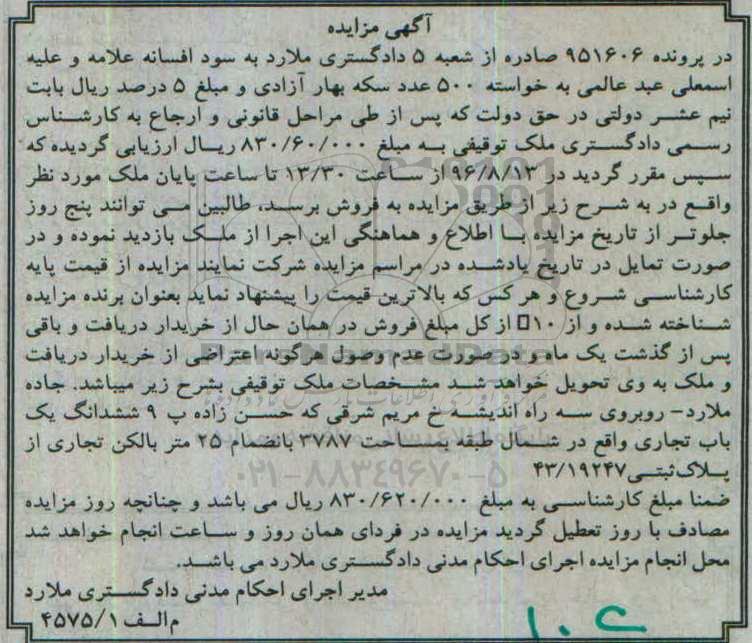 آگهی مزایده
در پرونده ۹۵۱۶۰۶ صادره از شعبه ۵ دادگستری ملارد به سود افسانه علامه و علیه
اسمعلی عبد عالمی به خواسته ۵۰۰ عدد سکه بهار آزادی و مبلغ ۵ درصد ریال بابت
نیم عشر دولتی در حق دولت که پس از طی مراحل قانونی و ارجاع به کارشناس
رسمی دادگستری ملک توقیفی به مبلغ ۸۳۰/۶۰/۰۰۰ ریال ارزیابی گردیده که
سپس مقرر گردید در ۹۶/۸/۱۳ از ساعت ۱۳/۳۰ تا ساعت پایان ملک مورد نظر
واقع در به شرح زیر از طریق مزایده به فروش برسد، طالبین می توانند پنج روز
جلوتر از تاریخ مزایده با اطلاع و هماهنگی این اجرا از ملک بازدید نموده و در
صورت تمایل در تاریخ یادشده در مراسم مزایده شرکت نمایند مزایده از قیمت پایه
کارشناسی شروع و هر کس که بالاترین قیمت را پیشنهاد نماید بعنوان برنده مزایده
شناخته شده و از ۱۰ از کل مبلغ فروش در همان حال از خریدار دریافت و باقی
پس از گذشت یک ماه و در صورت عدم وصول هرگونه اعتراضی از خریدار دریافت
و ملک به وی تحویل خواهد شد مشخصات ملک توقیفی بشرح زیر میباشد. جاده
ملارد- روبروی سه راه اندیشه خ مریم شرقی که حسن زاده پ ۹ ششدانگ یک
باب تجاری واقع در شمال طبقه مساحت ۳۷۸۷ بانضمام ۲۵ متر بالکن تجاری از
پلاک ثبتی ۴۳/۱۹۲۴۷
ضمنا مبلغ کارشناسی به مبلغ ۸۳۰/۶۲۰/۰۰۰ ریال می باشد و چنانچه روز مزایده
مصادف با روز تعطیل گردید مزایده در فردای همان روز و ساعت انجام خواهد شد
محل انجام مزایده اجرای احکام مدنی دادگستری ملارد می باشد.
مدیر اجرای احکام مدنی دادگستری ملارد
م الف ۴۵۷۵/۱
ParsNamadData
۰۲۱-۸۸۳۴۹۶۷۰-۵